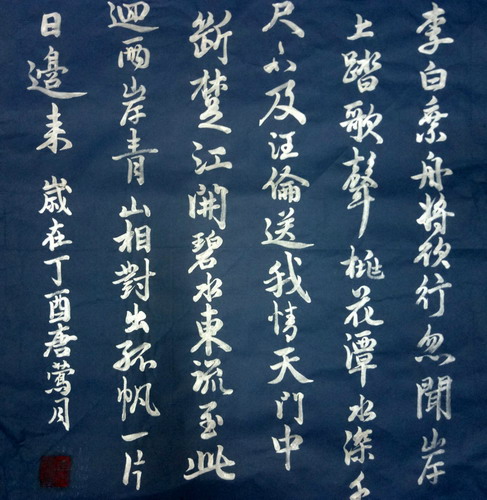 李白乘舟將欲行忽聞岸
上踏歌聲桃花潭水深千
尺不及汪倫送我情天門中
斷楚江開碧水東流至此
迴兩岸青山相對出孤帆一片
日邊來 歲在丁酉唐鶯月